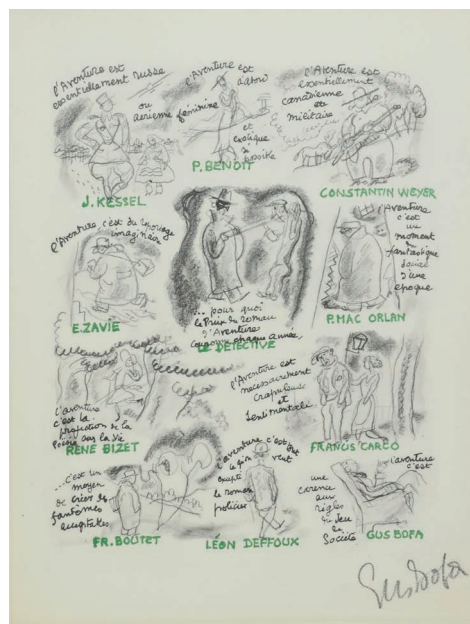 l'Aventure est
essentiellement russe
ou
aérienne
J. KESSEL
l'Aventure est
d'abord
féminine
et
exotique
si
possible
P. BENOIT
l'Aventure est
essentiellement
canadienne
et
militaire
CONSTANTIN WEYER
l'Aventure, c'est du
imaginaire
E. ZAVIE
... pour quoi
le Prix du Roman
d'Aventure
couronne chaque année,
LE DETECTIVE
l'Aventure
c'est
un
moment
du
fantastique
social
d'une
époque
P. MAC ORLAN
l'aventure
c'est la
projection de la
Poésie dans la Vie
RENE BIZET
l'Aventure est
nécessairement
crapuleuse
et
sentimentale.
FRANCIS CARCO
...c'est un
moyen
de créer les
fantômes
FR. BOUTET
l'aventure c'est tout
ce qu'on veut
excepté
le roman
policier
LÉON DEFFOUX
l'aventure
c'est
une
aux
règles
du Jeu
de
Société
GUS BOFA
Gus Bofa